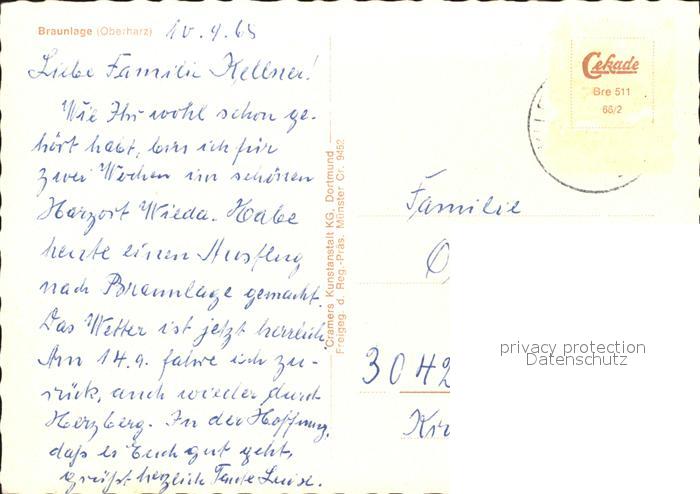 Braunlage (Oberharz)
10.9.68
Liebe Familie Kellner!
Wie Ihr wohl schon ge-
hört habt, bin ich für
zwei Wochen im schönen
Harzort Wieda. Habe
heute einen Ausflug
nach Braunlage gemacht.
Das Wetter ist jetzt herrlich.
Am 14.9. fahre ich zu-
rück, auch wieder durch
Herzberg. In der Hoffnung,
daß es Euch gut geht,
grüßt herzlich Tante Luise.
Cramers Kunstanstalt KG, Dortmund
Freigeg. d. Reg.-Präs. Münster Cr. 9452
Cekade
Bre 511
66/2
Familie
3042
privacy protection
Datenschutz